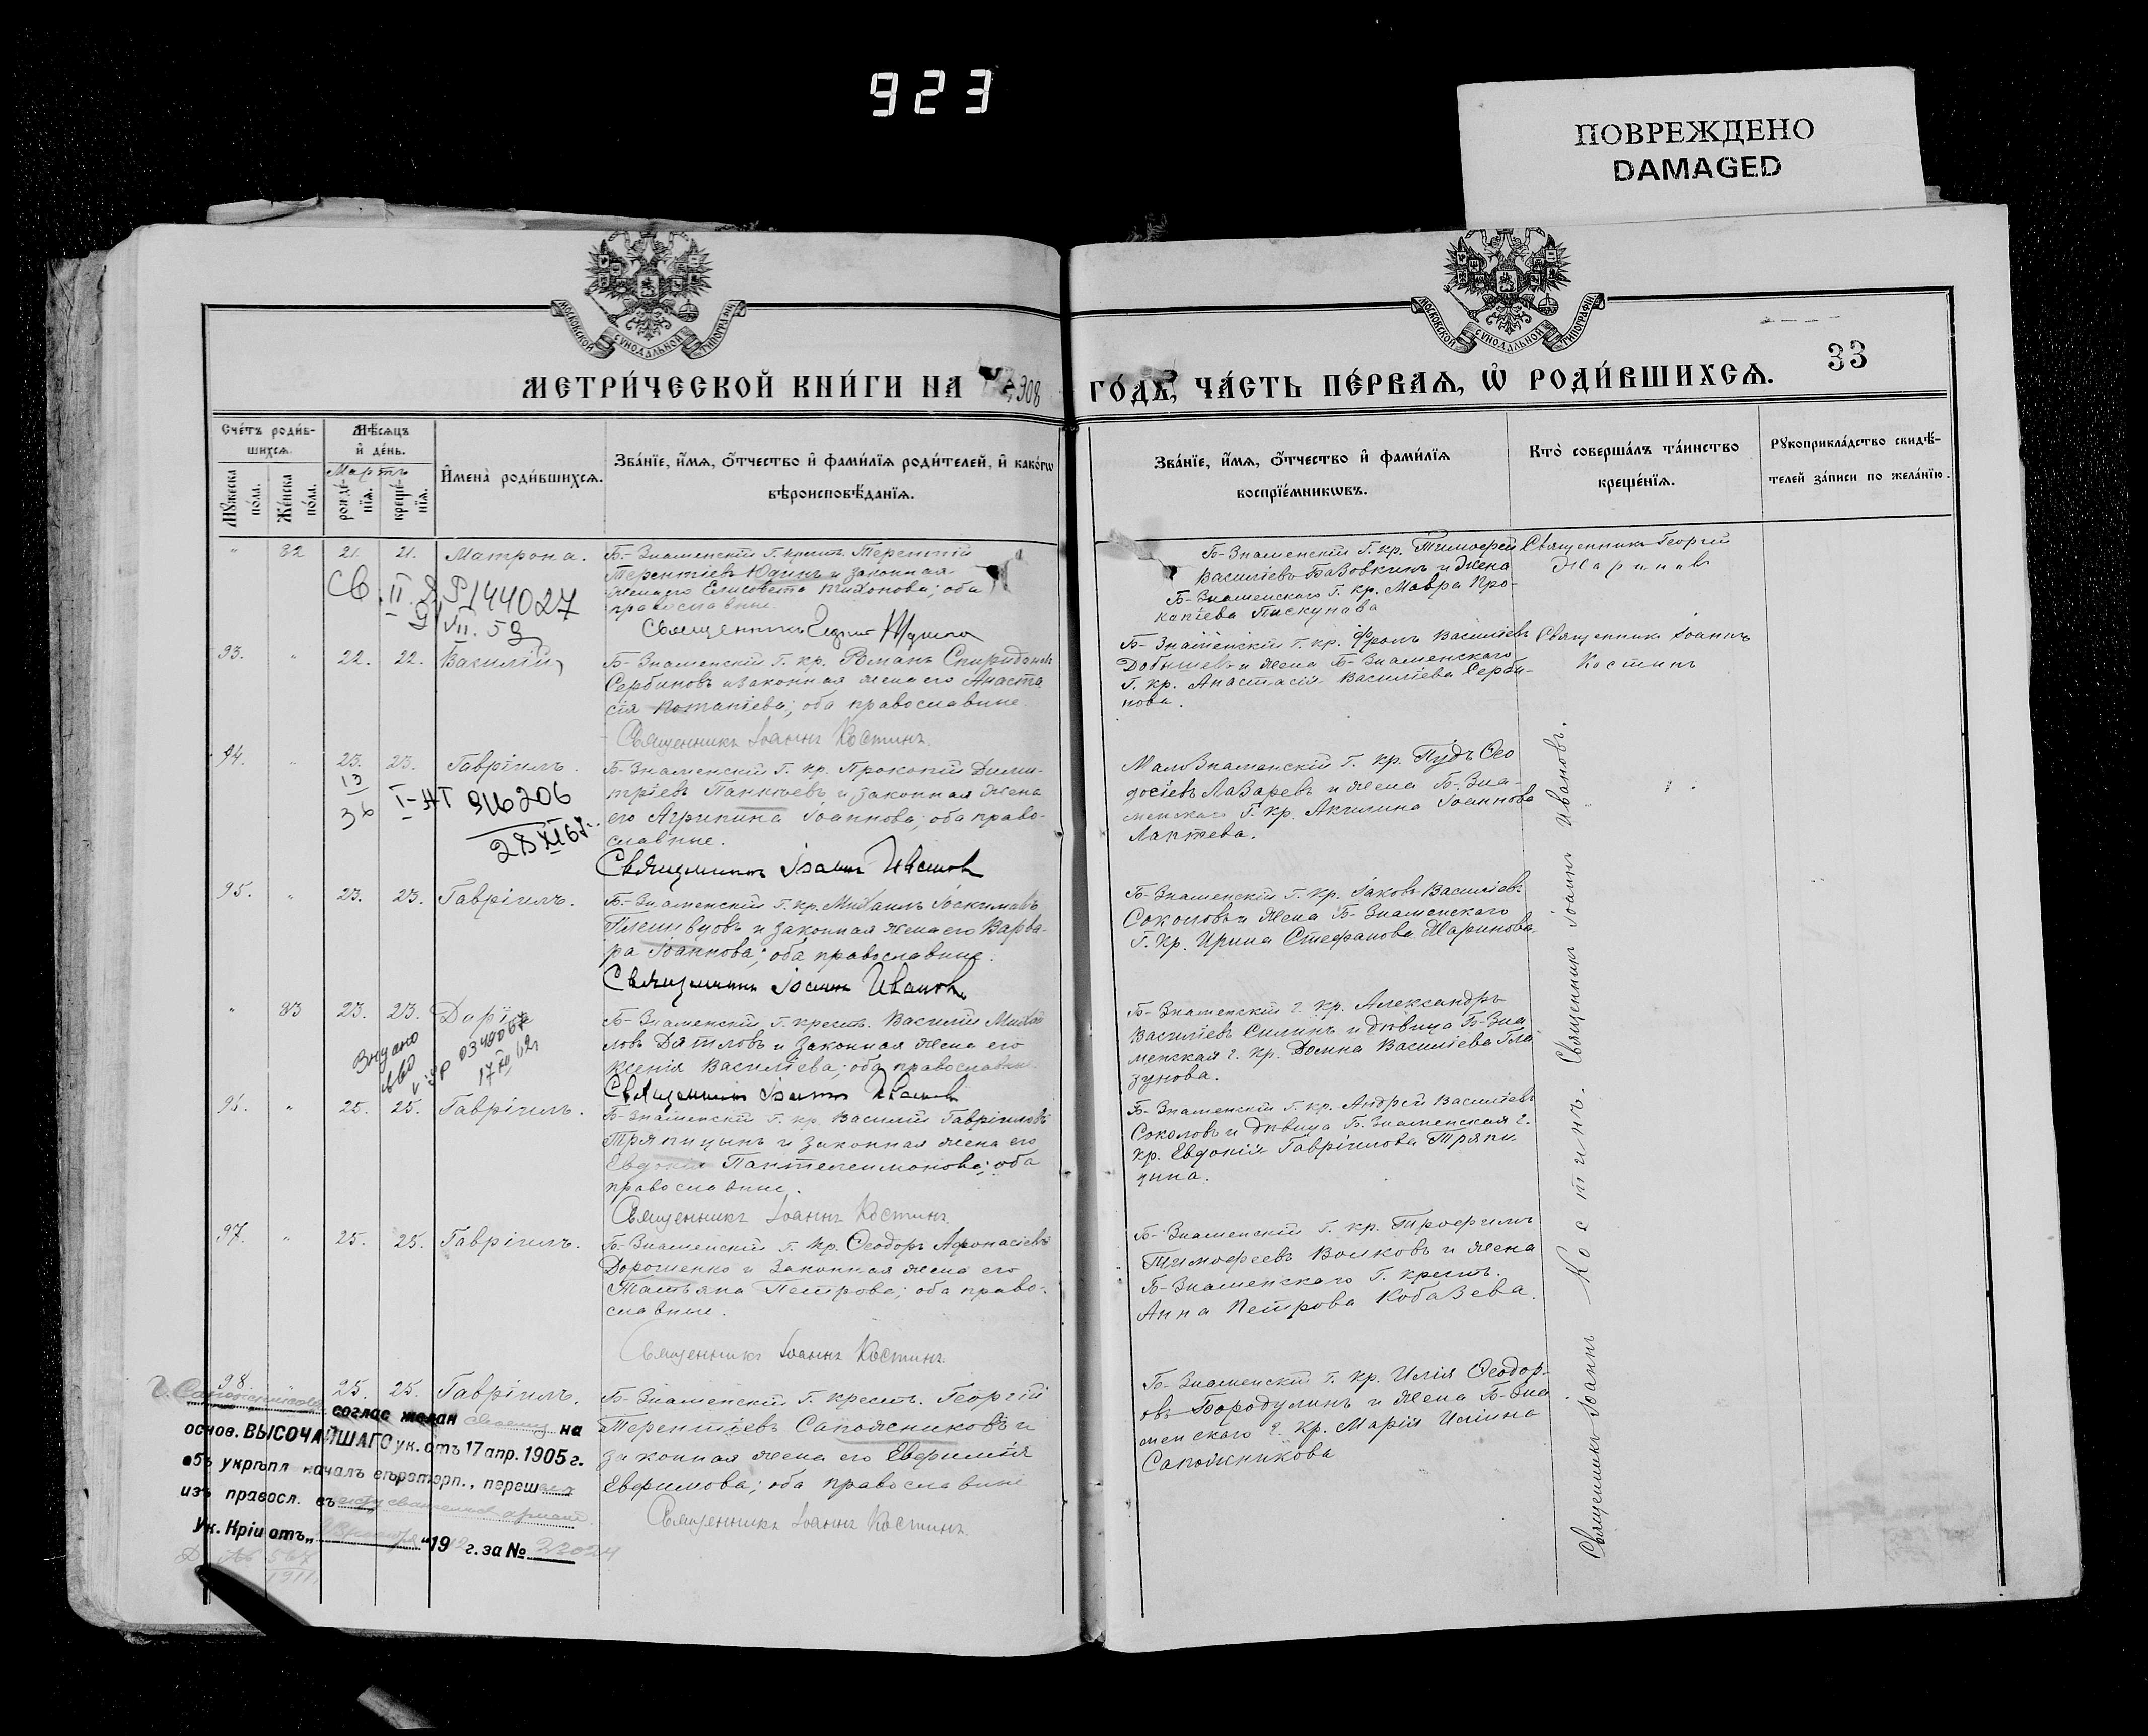 923
ПОВРЕЖДЕНО
DAMAGED
МОСКОВСКОЙ СУНОДАЛЬНОЙ ТИПОГРАФІИ
МОСКОВСКОЙ СУНОДАЛЬНОЙ ТИПОГРАФІИ
МЕТРИ́ЧЕСКОЙ КНИ́ГИ НА 1908
ГО́ДЪ, ЧА́СТЬ ПЕ́РВАѦ, Ѡ РОДИ́ВШИХСѦ.
33
Сче́тъ роди́в-
шихсѧ.
Мꙋ́жеска по́ла.
Же́нска по́ла.
Мѣ́сѧцъ
и҆ де́нь.
Мартъ
рожде́нїѧ.
креще́нїѧ.
И҆мена̀ роди́вшихсѧ.
Зва́нїе, и҆́мѧ, ѻ҆́тчество и҆ фами́лїѧ роди́телей, и҆ како́гѡ
вѣроисповѣ́данїѧ.
Зва́нїе, и҆́мѧ, ѻ҆́тчество и҆ фами́лїѧ
воспрїе́мникѡвъ.
Кто̀ соверша́лъ та́инство
креще́нїѧ.
Рꙋкоприкла́дство свидѣ́-
телей за́писи по жела́нїю.
" 82 21. 21. Матрона.
Б-Знаменскій Г. крест. Терентій
Терентіевъ Юдинъ и законная
жена его Елисавета Тихонова; оба
православные.
Священникъ
Б-Знаменскій Г. кр. Тимофей
Василіевъ Базовкинъ и жена
Б-Знаменскаго Г. кр. Мавра Про-
копіева Пискунова
Священникъ Георгій
144027
VII. 59
93. " 22. 22. Василій
Б-Знаменскій Г. кр. Романъ Спиридоновъ
Сербиновъ и законная жена его Анаста
сія Потапіева; оба православные.
Священникъ Іоаннъ Костинъ.
Б-Знаменскій Г. кр. Фролъ Василіевъ
и жена Б-Знаменскаго
Г. кр. Анастасія Василіева Серби-
нова.
Священникъ Іоаннъ
Костинъ
94. " 23. 23. Гавріилъ.
13
36 916206
28 XI 67.
Б-Знаменскій Г. кр. Прокопій Дими-
тріевъ и законная жена
его Агрипина Іоаннова; оба право-
славные.
Священникъ Іоаннъ Ивановъ
МалоЗнаменскій Г. кр. Пудъ Ѳео
досіевъ Лазаревъ и жена Б-Зна-
менскаго Г. кр. Акилина Іоаннова
Лаптева.
95. " 23. 23. Гавріилъ.
Б-Знаменскій Г. кр. Михаилъ Іоакимовъ
Плешивцовъ и законная жена его Варва-
ра Іоаннова; оба православные.
Священникъ Іоаннъ Ивановъ
Б-Знаменскій Г. кр. Іаковъ Василіевъ
Соколовъ и жена Б-Знаменскаго
Г. кр. Ирина Стефанова Маринова
" 83 23. 23. Дарія
Б-Знаменскій Г. крест. Василій Михаи
ловъ Дятловъ и законная жена его
Ксенія Василіева; оба православные
Священникъ Іоаннъ Ивановъ
Б-Знаменскій г. кр. Александръ
Василіевъ Силинъ и дѣвица Б-Зна
менская г. кр. Домна Василіева Гла
зунова.
96. " 25. 25. Гавріилъ.
Б-Знаменскій Г. кр. Василій Гавріиловъ
Тряпицынъ и законная жена его
Евдокія Пантелеимонова; оба
православные.
Священникъ Іоаннъ Костинъ
Б-Знаменскій Г. кр. Андрей Василіевъ
Соколовъ и дѣвица Б-Знаменская г.
кр. Евдокія Гавріилова Тряпи
цына.
97. " 25. 25. Гавріилъ.
Б-Знаменскій Г. кр. Ѳеодоръ Афонасіевъ
Дорошенко и законная жена его
Татьяна Петрова; оба право-
славные.
Священникъ Іоаннъ Костинъ
Б-Знаменскій Г. кр. Трофимъ
Тимофеевъ Волковъ и жена
Б-Знаменскаго Г. крест.
Анна Петрова Кобазева.
98 25. 25. Гавріилъ.
Б-Знаменскій Г. крест. Георгій
Терентіевъ Сапожниковъ и
законная жена его Евфимія
Евфимова; оба православные
Священникъ Іоаннъ Костинъ.
Б-Знаменскій Г. кр. Илія Ѳеодор-
овъ Бородулинъ и жена Б-Зна
менскаго г. кр. Марія Иліина
Сапожникова
Священникъ Іоаннъ Костинъ. Священникъ Іоаннъ Ивановъ.
соглас желан своему на
основ. ВЫСОЧАЙШАГО ук. отъ 17 апр. 1905 г.
объ укрѣпл началъ вѣротерп., переш
изъ правосл. въ
Ук. Кріи отъ „ " 1912 г. за № 23024
№ 567
1911